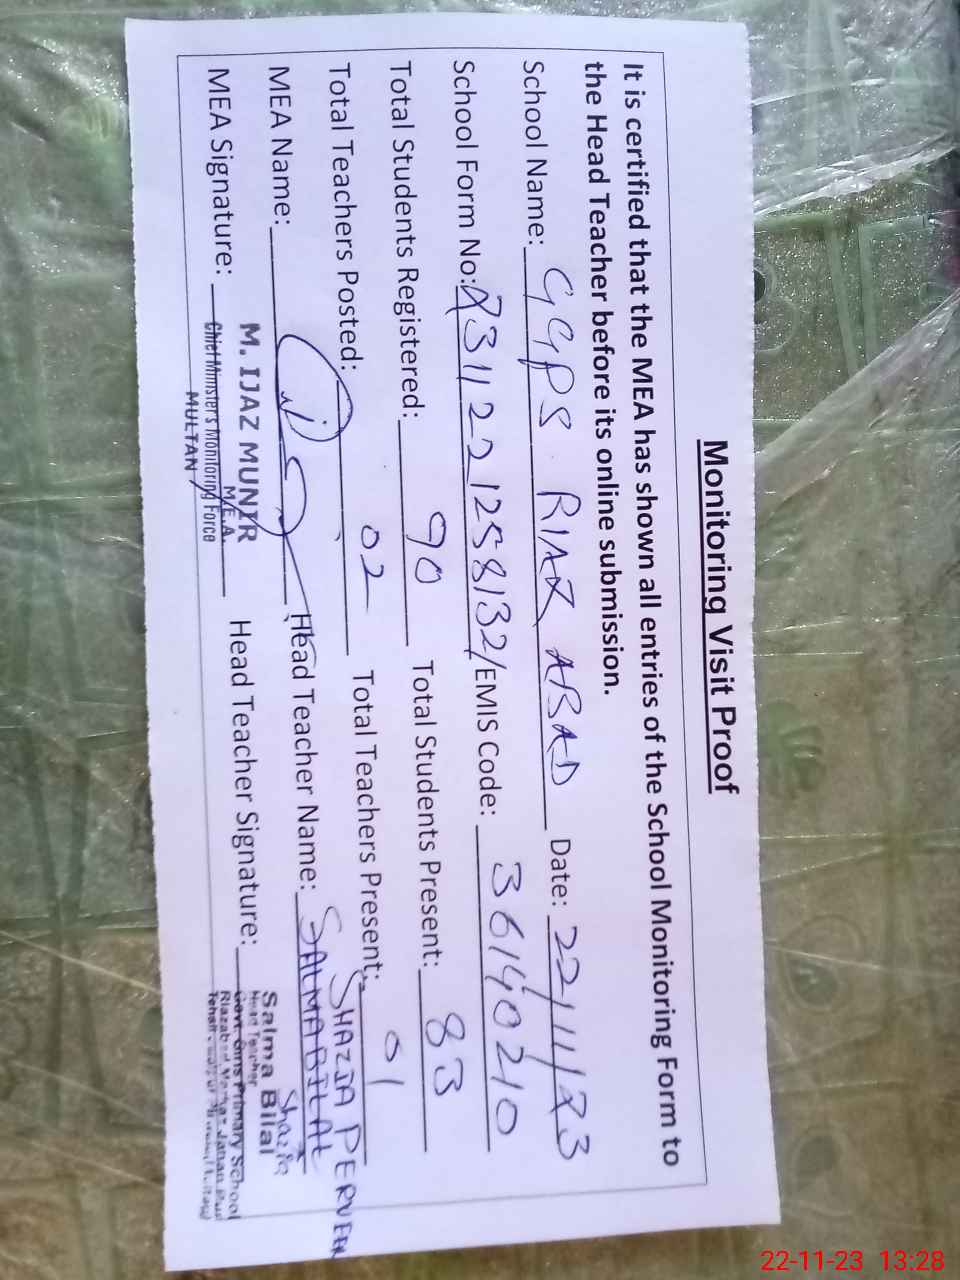 Monitoring Visit Proof
It is certified that the MEA has shown all entries of the School Monitoring Form to
the Head Teacher before its online submission.
School Name: GGPS RIAZ ABAD Date: 22/11/23
School Form No: 2311221258132/EMIS Code: 36140210
Total Students Registered: 90 Total Students Present: 83
Total Teachers Posted: 02 Total Teachers Present: 01
SHAZIA PERVEEN
MEA Name: Head Teacher Name: SALMA BILAL
Shazia
MEA Signature: Head Teacher Signature:
M. IJAZ MUNIR
M.E.A.
Chief Minister's Monitoring Force
MULTAN
Salma Bilal
Head Teacher
Govt. Girls Primary School
Riazabad
22-11-23 13:28